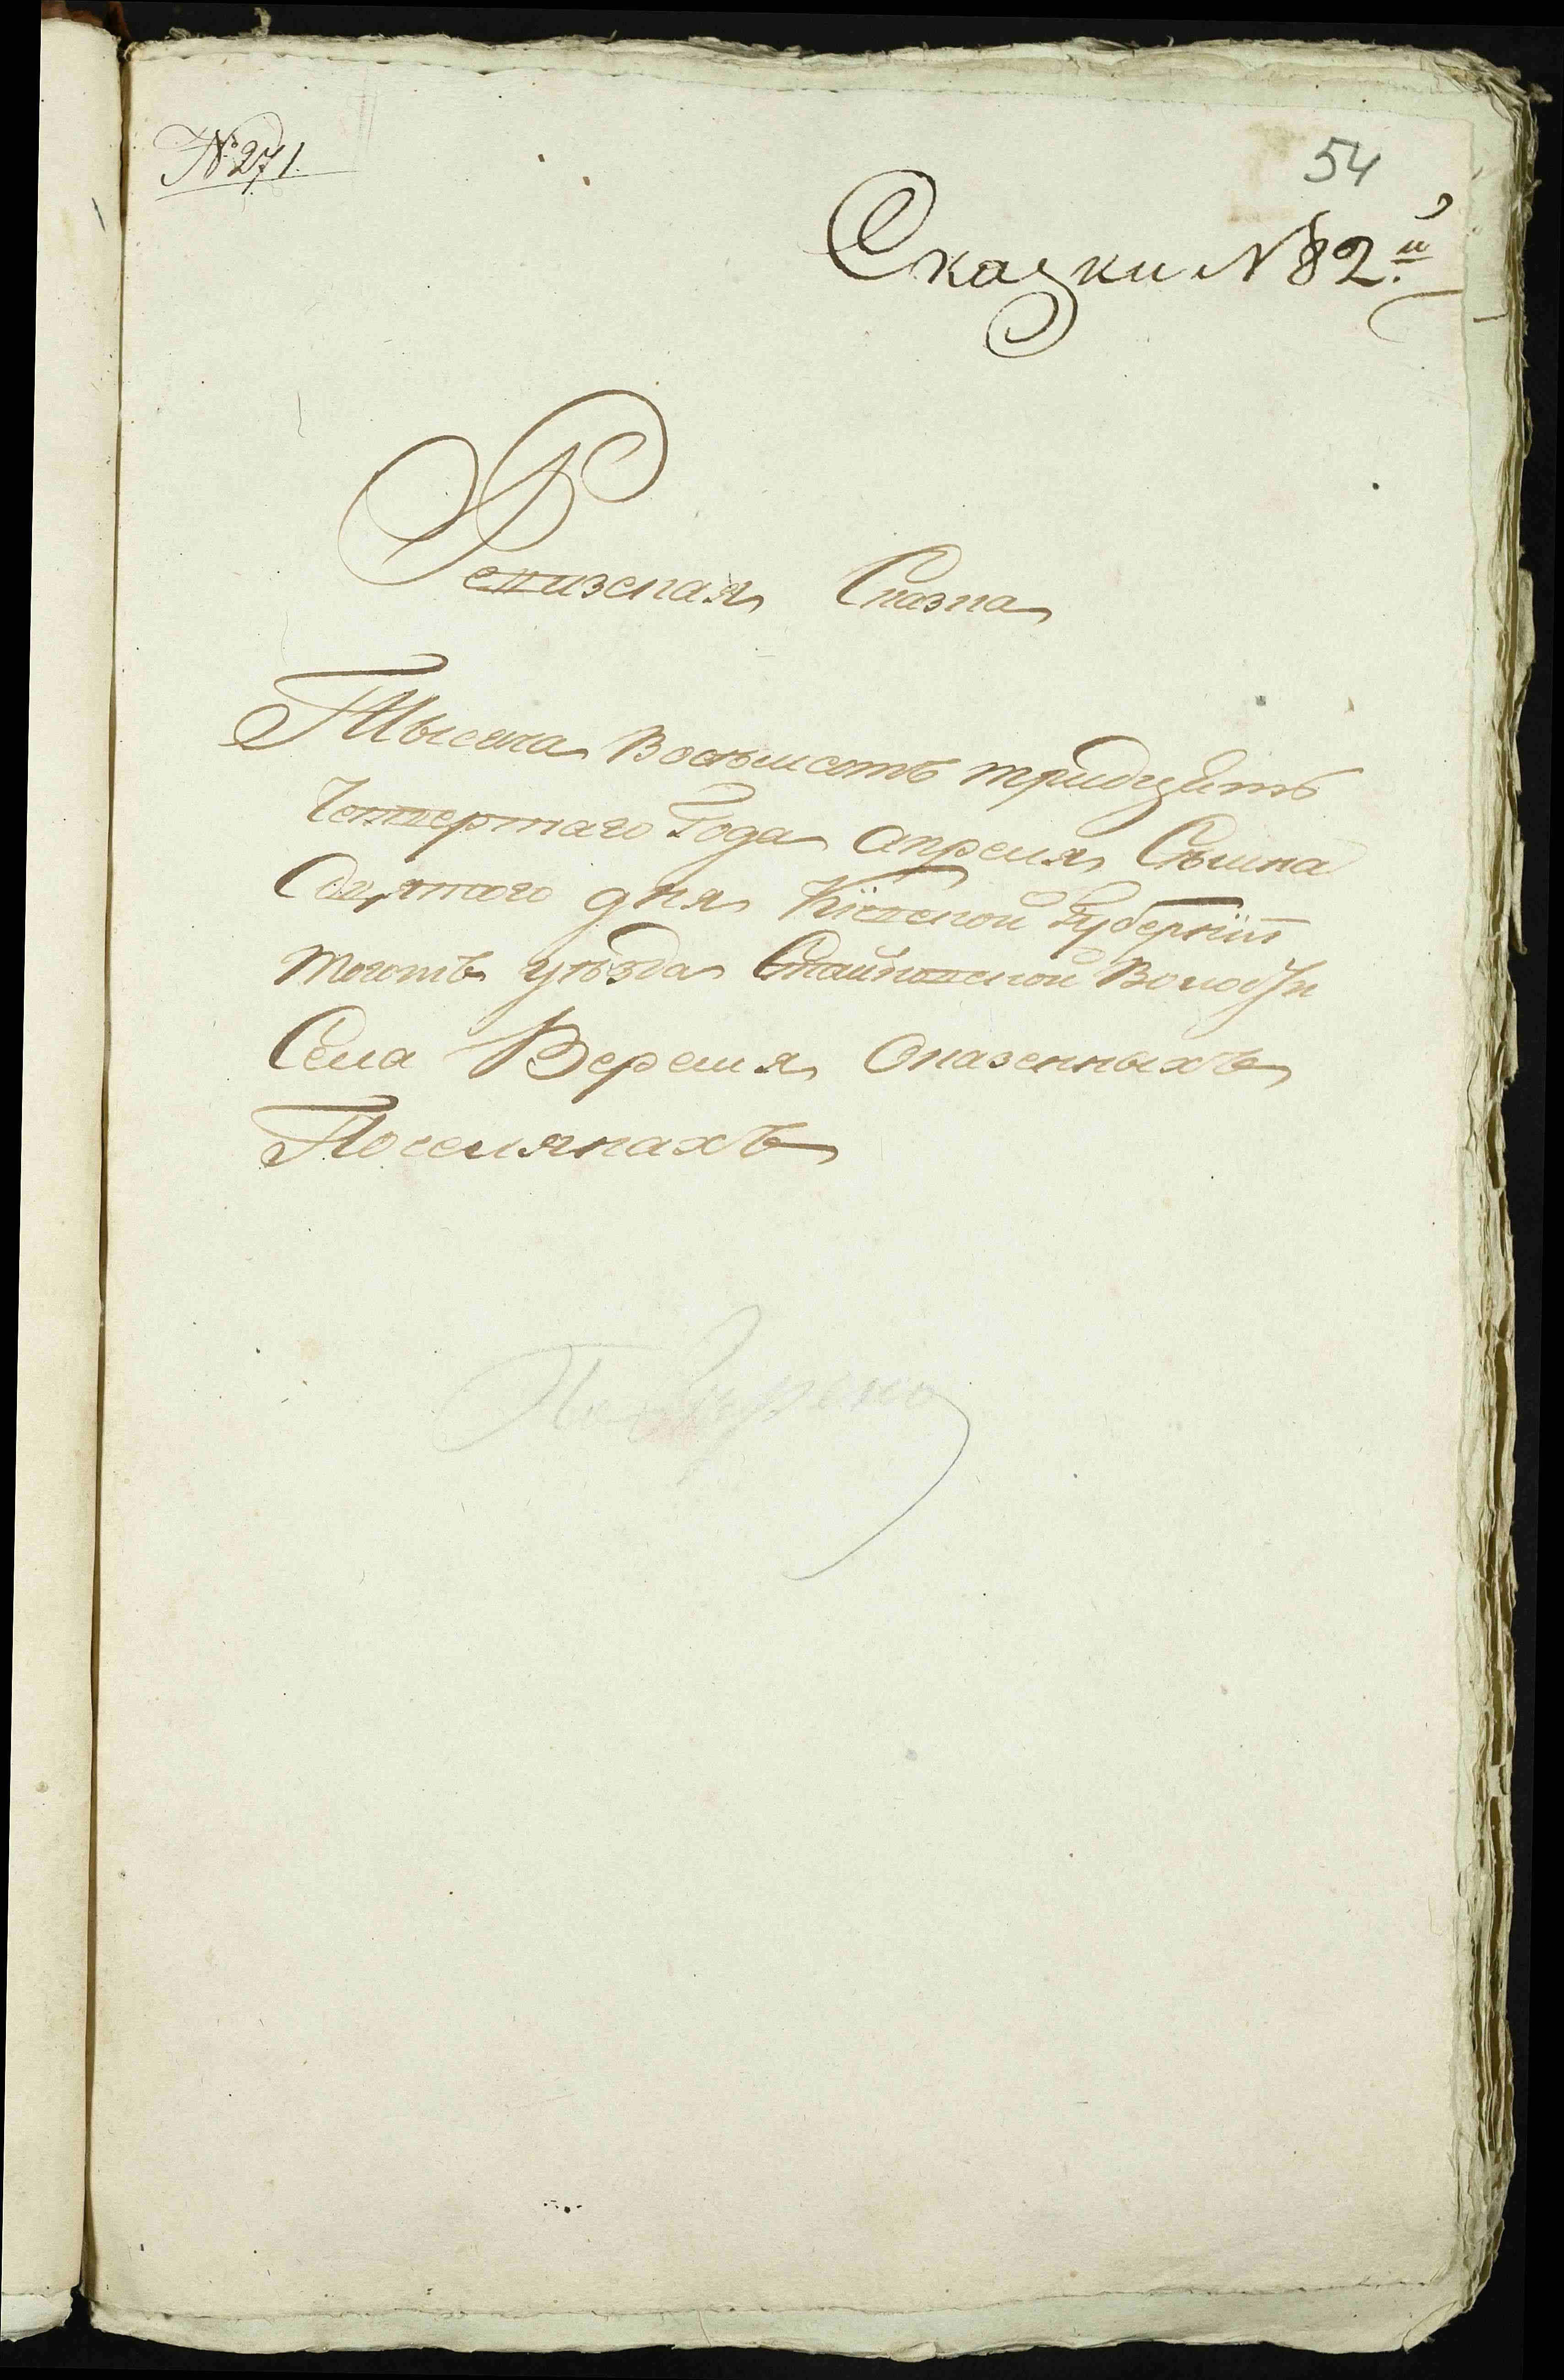 № 271.
54
Сказки № 82й
Ревизская Сказка
Тысяча Восемсотъ тридцать
Четвертаго Года апреля
девятого дня Кіевской Губерніи
тогожъ уѣзда Стайковской Волости
Села Веремя Оказенныхъ
Поселянахъ